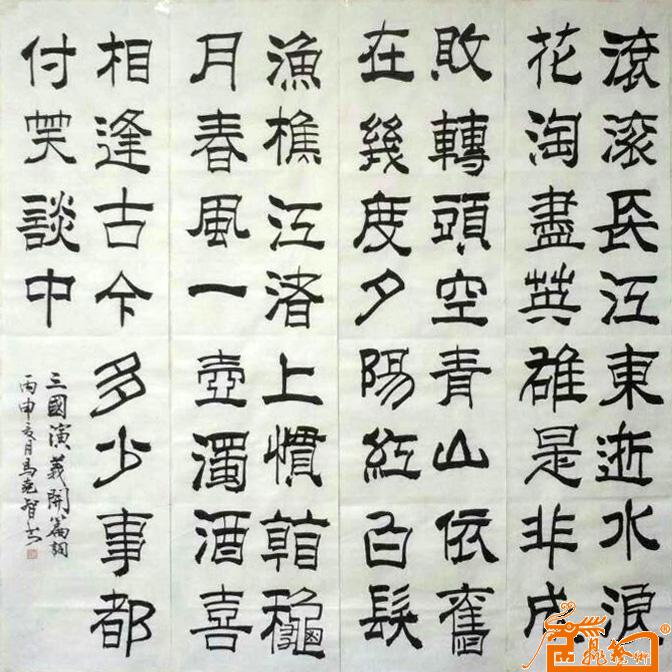 滾滾長江東逝水浪
花淘盡英雄是非成
敗轉頭空青山依舊
在幾度夕陽紅白髮
漁樵江渚上慣看龝
月春風一壺濁酒喜
相逢古今多少事都
付笑談中
三國演義開篇詞
丙申夏月馬堯智書